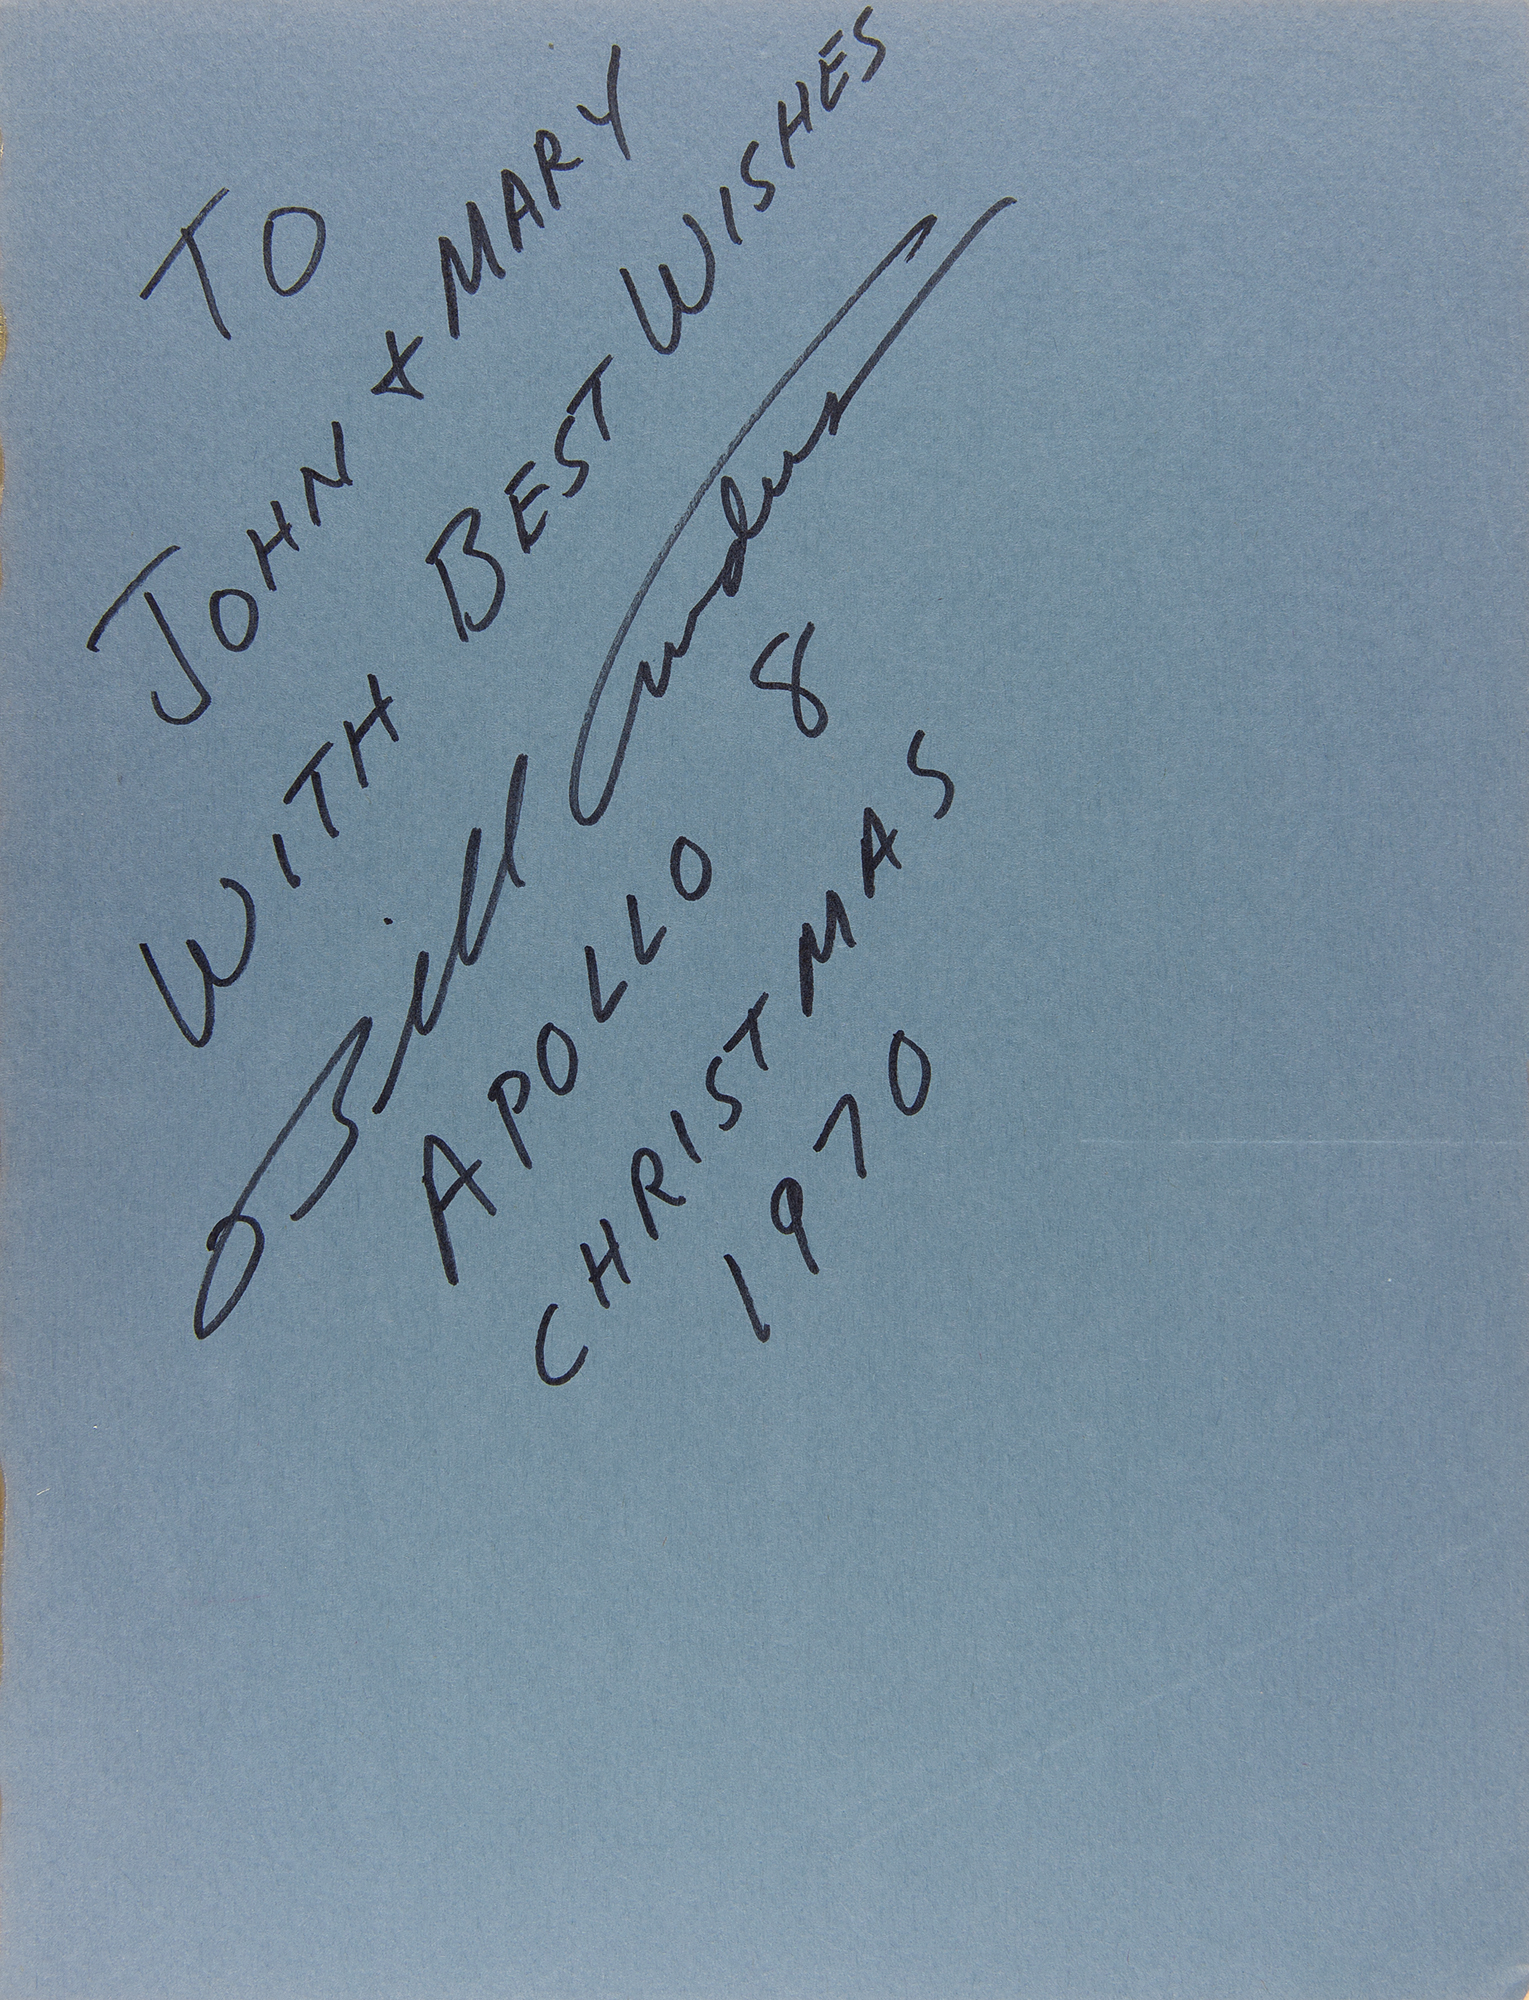 TO
JOHN & MARY
WITH BEST WISHES
Bill Anders
APOLLO 8
CHRISTMAS
1970